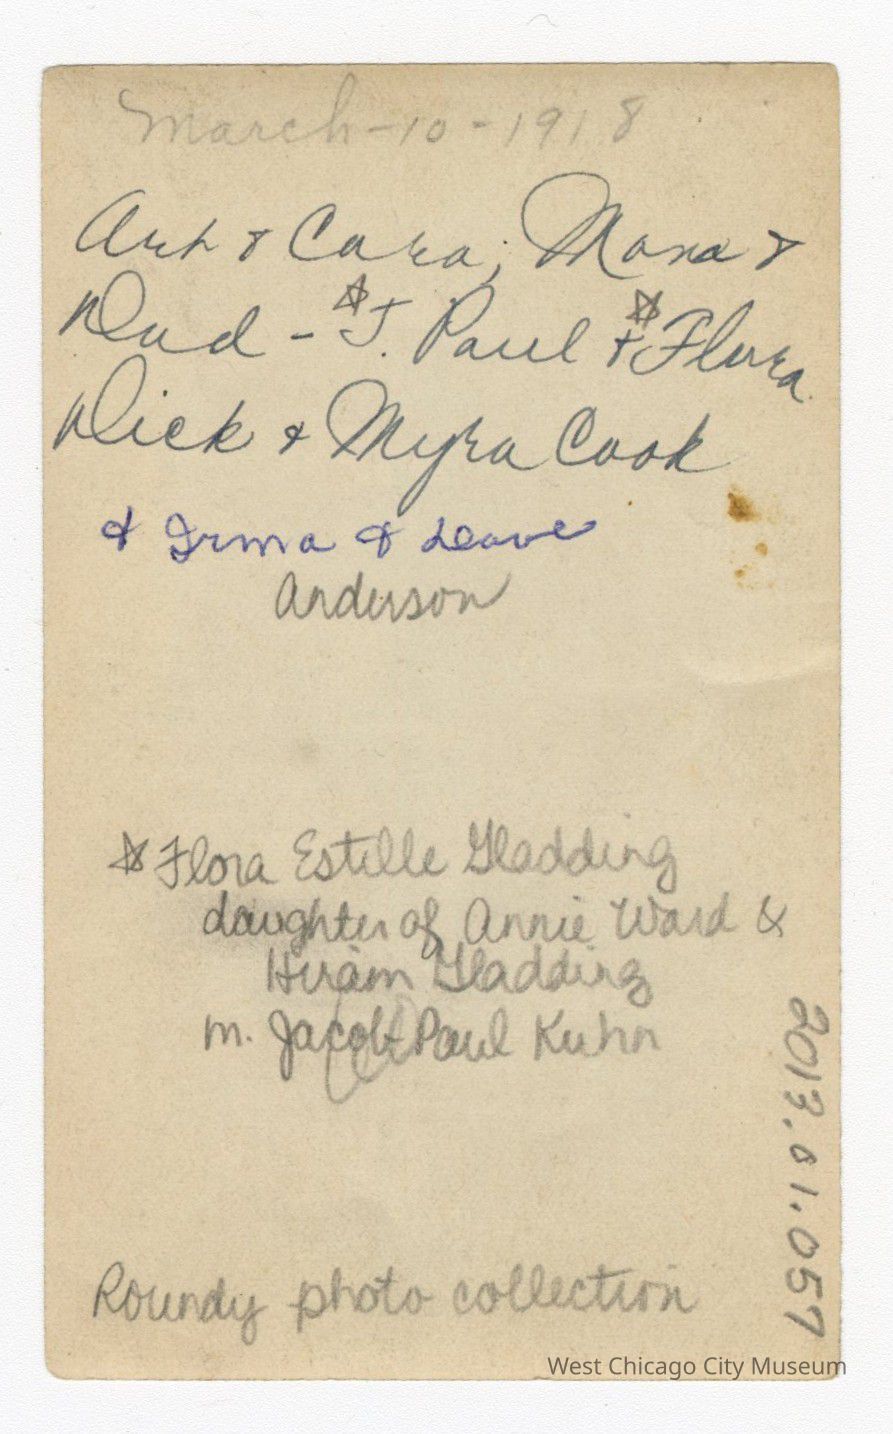 March-10-1918
Art & Cara, Mama &
Dad - ☆J. Paul & ☆Flora
Dick & Myra Cook
& Irma & Leave
Anderson
☆Flora Estelle Gladding
daughter of Annie Ward &
Hiram Gladding
m. Jacob Paul Kuhn
2013.01.057
Roundy photo collection
West Chicago City Museum